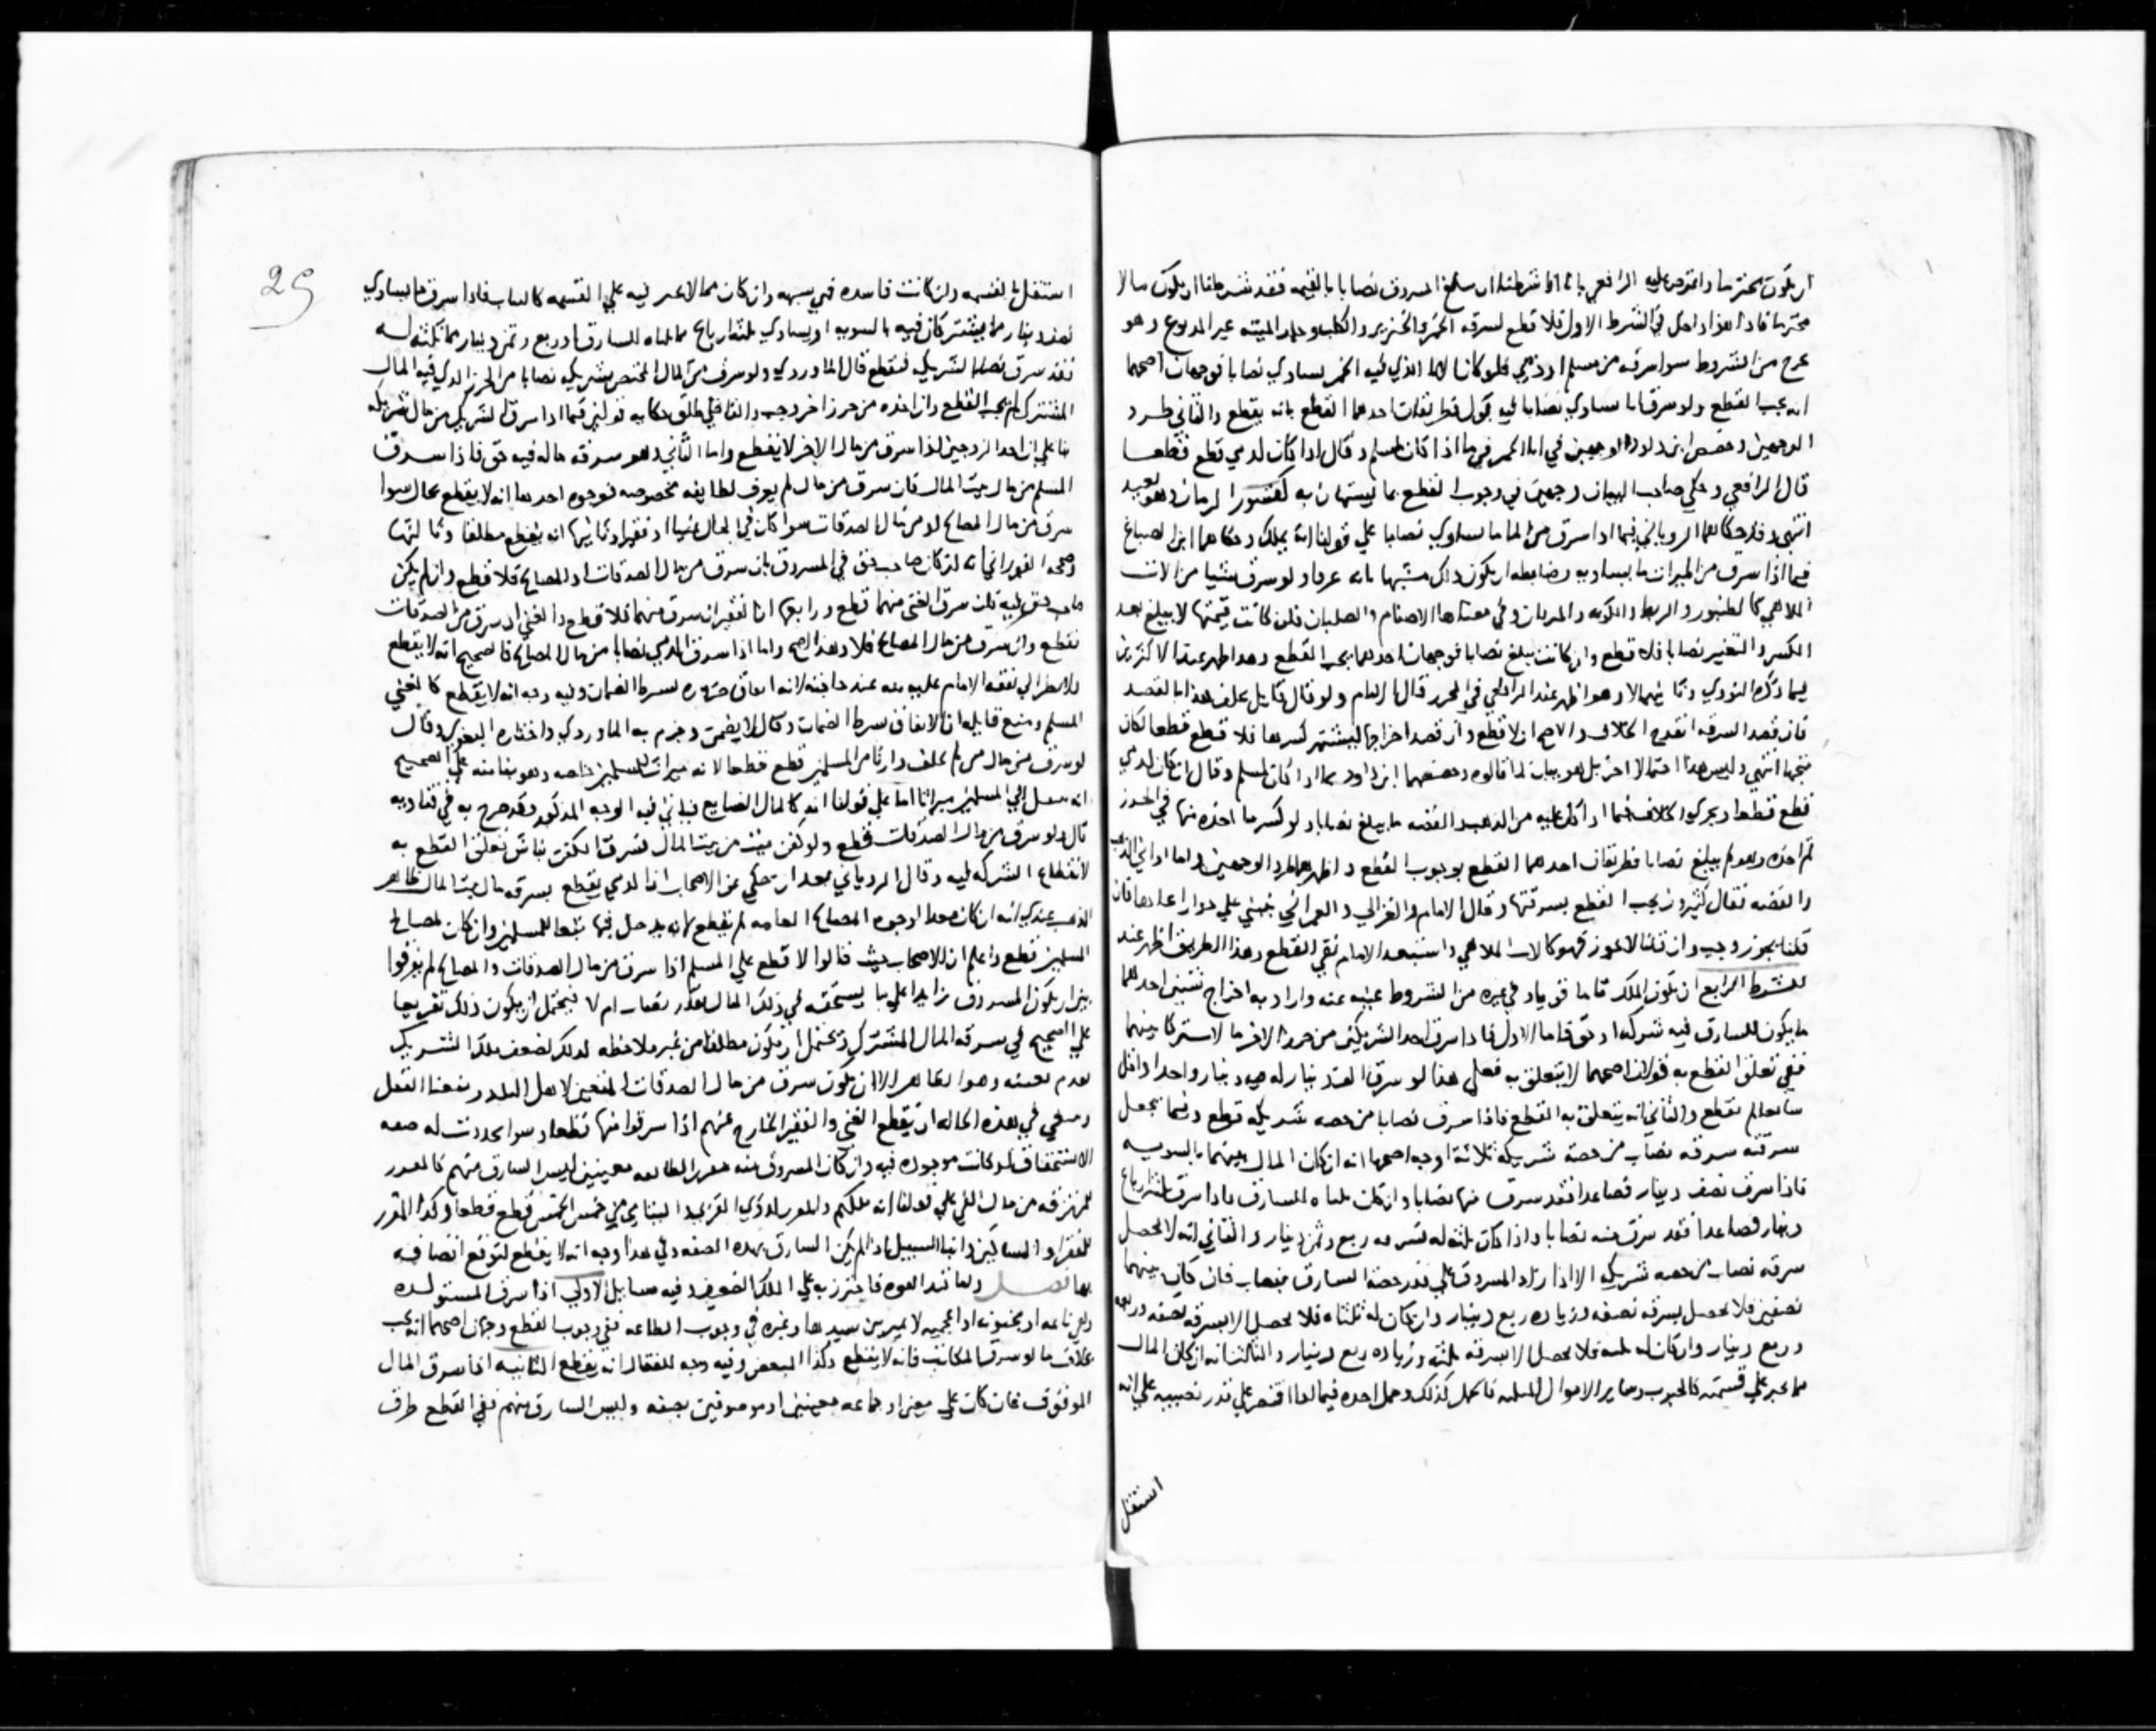 ان يكون محترما واعترض عليه الرافعي بانا اذا شرطنا ان يبلغ المسروق نصابا بالقيمة فقد شرطنا ان يكون مالا
محترما فاذا هذا داخل في الشرط الاول فلا قطع لسرقه الخمر والخنزير والكلب وجلد الميته غير المدبوغ وهو
خرج من الشروط سوا سرقه من مسلم او ذمي فلو كان الانا الذي فيه الخمر يساوي نصابا فوجهان اصحهما
انه يجب القطع ولو سرق انا يساوي نصابا فيه بول فطريقان احدهما القطع بانه يقطع والثاني طرد
الوجهين وخصص ابن داود الوجهين في انا الخمر فيما اذا كان لمسلم وقال اذا كان لذمي قطع قطعا
قال الرافعي وحكي صاحب البيان وجهين في وجوب القطع بما يستهان به كقشور الرمان وهو بعيد
انتهى وقد حكاهما الروياني فيما اذا سرق من الماء ما يساوي نصابا علي قولنا انه يملك وحكاهما ابن الصباغ
فيما اذا سرق من الميراث ما يساويه وضابطه ان يكون ذلك مشبها بانه عرفا ولو سرق شيا من الات
الملاهي كالطنبور والربط والكوبه والمزمار وفي معناها الاصنام والصلبان فان كانت قيمتها لا يبلغ بعد
الكسر والتغيير نصابا فلا قطع وان كانت تبلغ نصابا فوجهان احدهما يجب القطع وهذا اظهر عند الاكثرين
فيما ذكره النووي وثانيهما لا وهو اظهر عند الرافعي في المحرر قال الامام ولو قال قايل يختلف هذا بالقصد
فان قصد السرقه انقدح الخلاف والاصح ان لا قطع وان قصد اخراجها ليشتهر كسرها فلا قطع قطعا لكان
متجها انتهى وليس هذا احتمالا اخر بل هو بيان لما قالوه وخصصهما ابن داود بما اذا كان لمسلم وقال ان كان لذمي
قطع قطعا ويجري الخلاف فيما اذا كان عليه من الذهب والفضه ما يبلغ نصابا ولو كسر ما اخذه منها في الحرز
ثم اخذه وهو لم يبلغ نصابا فطريقان احدهما القطع بوجوب القطع واظهرهما طرد الوجهين واما اواني الذهب
والفضه فقال كثيرون يجب القطع بسرقتها وقال الامام والغزالي والعمراني ينبني علي جواز اتخاذها فان
قلنا يجوز وجب وان قلنا لا يجوز فهو كالات الملاهي واستبعد الامام نفي القطع وهذا الطريق اظهر عند
الشرط الرابع ان يكون الملك تاما قويا وفي غيره من الشروط غنيه عنه واراد به اخراج شيئين احدهما
ما يكون للسارق فيه شركه او حق فاما الاول فاذا سرق احد الشريكين من حرز الاخر مالا مشتركا بينهما
ففي تعلق القطع به قولان اصحهما لا يتعلق به فعلي هذا لو سرق الف دينار له فيه دينار واحد او اقل
شايعا لم يقطع والثاني انه يتعلق به القطع فاذا سرق نصابا من حصه شريكه قطع وفيما يجعل
سرقته سرقه نصاب من حصة شريكه ثلاثة اوجه اصحها انه ان كان المال بينهما بالسويه
فاذا سرق نصف دينار فصاعدا فقد سرق منها نصابا وان كان ثلثاه للسارق فاذا سرق ثلثه ارباع
دينار فصاعدا فقد سرق منه نصابا واذا كان ثلثه له فسرقه ربع وثمن دينار والثاني انه لا يحصل
سرقه نصاب من حصه شريكه الا اذا زاد المسروق علي قدر حصة السارق بنصاب فان كان بينهما
نصفين فلا يحصل بسرقه نصفه وزياده ربع دينار وان كان له ثلثاه فلا يحصل الا بسرقه نصفه وربعه
وربع دينار وان كان له ثلثه فلا يحصل الا بسرقه ثلثه وزياده ربع دينار والثالث انه ان كان المال
مما يجبر علي قسمته كالحبوب وساير الاموال المثليه فالحكم كذلك وحمل اخذه فيما اذا اقتصر علي قدر نصيبه علي انه
استقل
29
استقل بالقسمه وان كانت فاسده فهي شبهه وان كان مما لا يجبر فيه علي القسمه كالثياب فاذا سرق ما يساوي
نصف دينار مما يشتركان فيه بالسويه او يساوي ثلثه ارباع مما ثلثاه للسارق او ربع وثمن دينار مما ثلثه له
فقد سرق نصابا لشريكه فيقطع قال الماوردي ولو سرق من المال المختص بشريكه نصابا من الحرز الذي فيه المال
المشترك لم يجب القطع وان اخذه من حرز اخر وجب والثاني يطلق حكايه قولين فيما اذا سرق الشريك من مال شريكه
بنا علي ان احد الزوجين اذا سرق من مال الاخر لا يقطع واما الثاني وهو سرقه ماله فيه حق فاذا سرق
المسلم من مال بيت المال فان سرق من مال لم يعرف لطايفه مخصوصه فوجوه احدها انه لا يقطع بحال سوا
سرق من مال المصالح او من مال الصدقات سوا كان في الحال غنيا او فقيرا وثانيها انه يقطع مطلقا وثالثها
وصححه الفوراني انه ان كان صاحب حق في المسروق بان سرق من مال الصدقات او المصالح فلا قطع وان لم يكن
صاحب حق فيه فان سرق الغني منهما قطع ورابعها ان الفقير ان سرق منهما فلا قطع والغني ان سرق من الصدقات
يقطع وان سرق من مال المصالح فلا وهذا اصح واما اذا سرق الذمي نصابا من مال المصالح فالصحيح انه لا يقطع
ولا نظر الي نفقه الامام عليه منه عند حاجته لانه انفاق ضروره بشرط الضمان وفيه وجه انه لا يقطع كالغني
المسلم ومنع قايله ان الانفاق بشرط الضمان وقال لا يضمن وجزم به الماوردي واختاره البغوي وقال
لو سرق من مال من لم يخلف وارثا من المسلمين قطع قطعا لانه ميراث للمسلمين خاصه وهو بنا منه علي الصحيح
انه ينتقل الي المسلمين ميراثا اما علي قولنا انه كالمال الضايع فياتي فيه الوجه المذكور وقد صرح به في فتاويه
قال ولو سرق من مال الصدقات قطع ولو كفن ميت من بيت المال فسرق الكفن نباش تعلق القطع به
لانقطاع الشركه فيه وقال الروياني بعد ان حكي عن الاصحاب ان الذمي يقطع بسرقه مال بيت المال ظاهر
المذهب عندي انه ان كان معدا لوجوه المصالح العامه لم يقطع لانه يدخل فيها تبعا للمسلمين وان كان لمصالح
المسلمين قطع واعلم ان الاصحاب حيث قالوا لا قطع علي المسلم اذا سرق من مال الصدقات والمصالح لم يفرقوا
بين ان يكون المسروق زايدا علي ما يستحقه في ذلك المال بقدر نصاب ام لا فيحتمل ان يكون ذلك تفريعا
علي الصحيح في سرقه المال المشترك ويحتمل ان يكون مطلقا من غير ملاحظه لذلك لضعف ملك الشريك
لعدم تعينه وهو الظاهر الا ان يكون سرق من مال الصدقات المتعين لاهل البلد ومنعنا النقل
وينبغي في هذه الحاله ان يقطع الغني والفقير الخارج عنهم اذا سرقوا منها قطعا وسوا تجددت له صفه
الاستحقاق او كانت موجوده فيه وان كان المسروق منه مقررا لطايفه معينين ليس السارق منهم كالمقدر
للمرتزقه من مال الفي علي قولنا انه ملكهم والمقرر لذوي القربي واليتامي من خمس الخمس قطع قطعا وكذا المقرر
للفقرا والمساكين وابنا السبيل اذا لم يكن السارق بهذه الصفه وفي هذا وجه انه لا يقطع لتوقع اتصافه
بها فصل واما قيد القوه فاحترز به عن الملك الضعيف وفيه مسايل الاولي اذا سرق المستولده
وهي نايمه او مجنونه او اعجميه لا تميز بين سيدها وغيره في وجوب الطاعه ففي وجوب القطع وجهان اصحهما انه يجب
بخلاف ما لو سرق المكاتب فانه لا يقطع وكذا المبعض وفيه وجه للقفال انه يقطع الثانيه اذا سرق المال
الموقوف فان كان علي معين او جماعه معينين او موصوفين بصفه وليس السارق منهم ففي القطع طرق